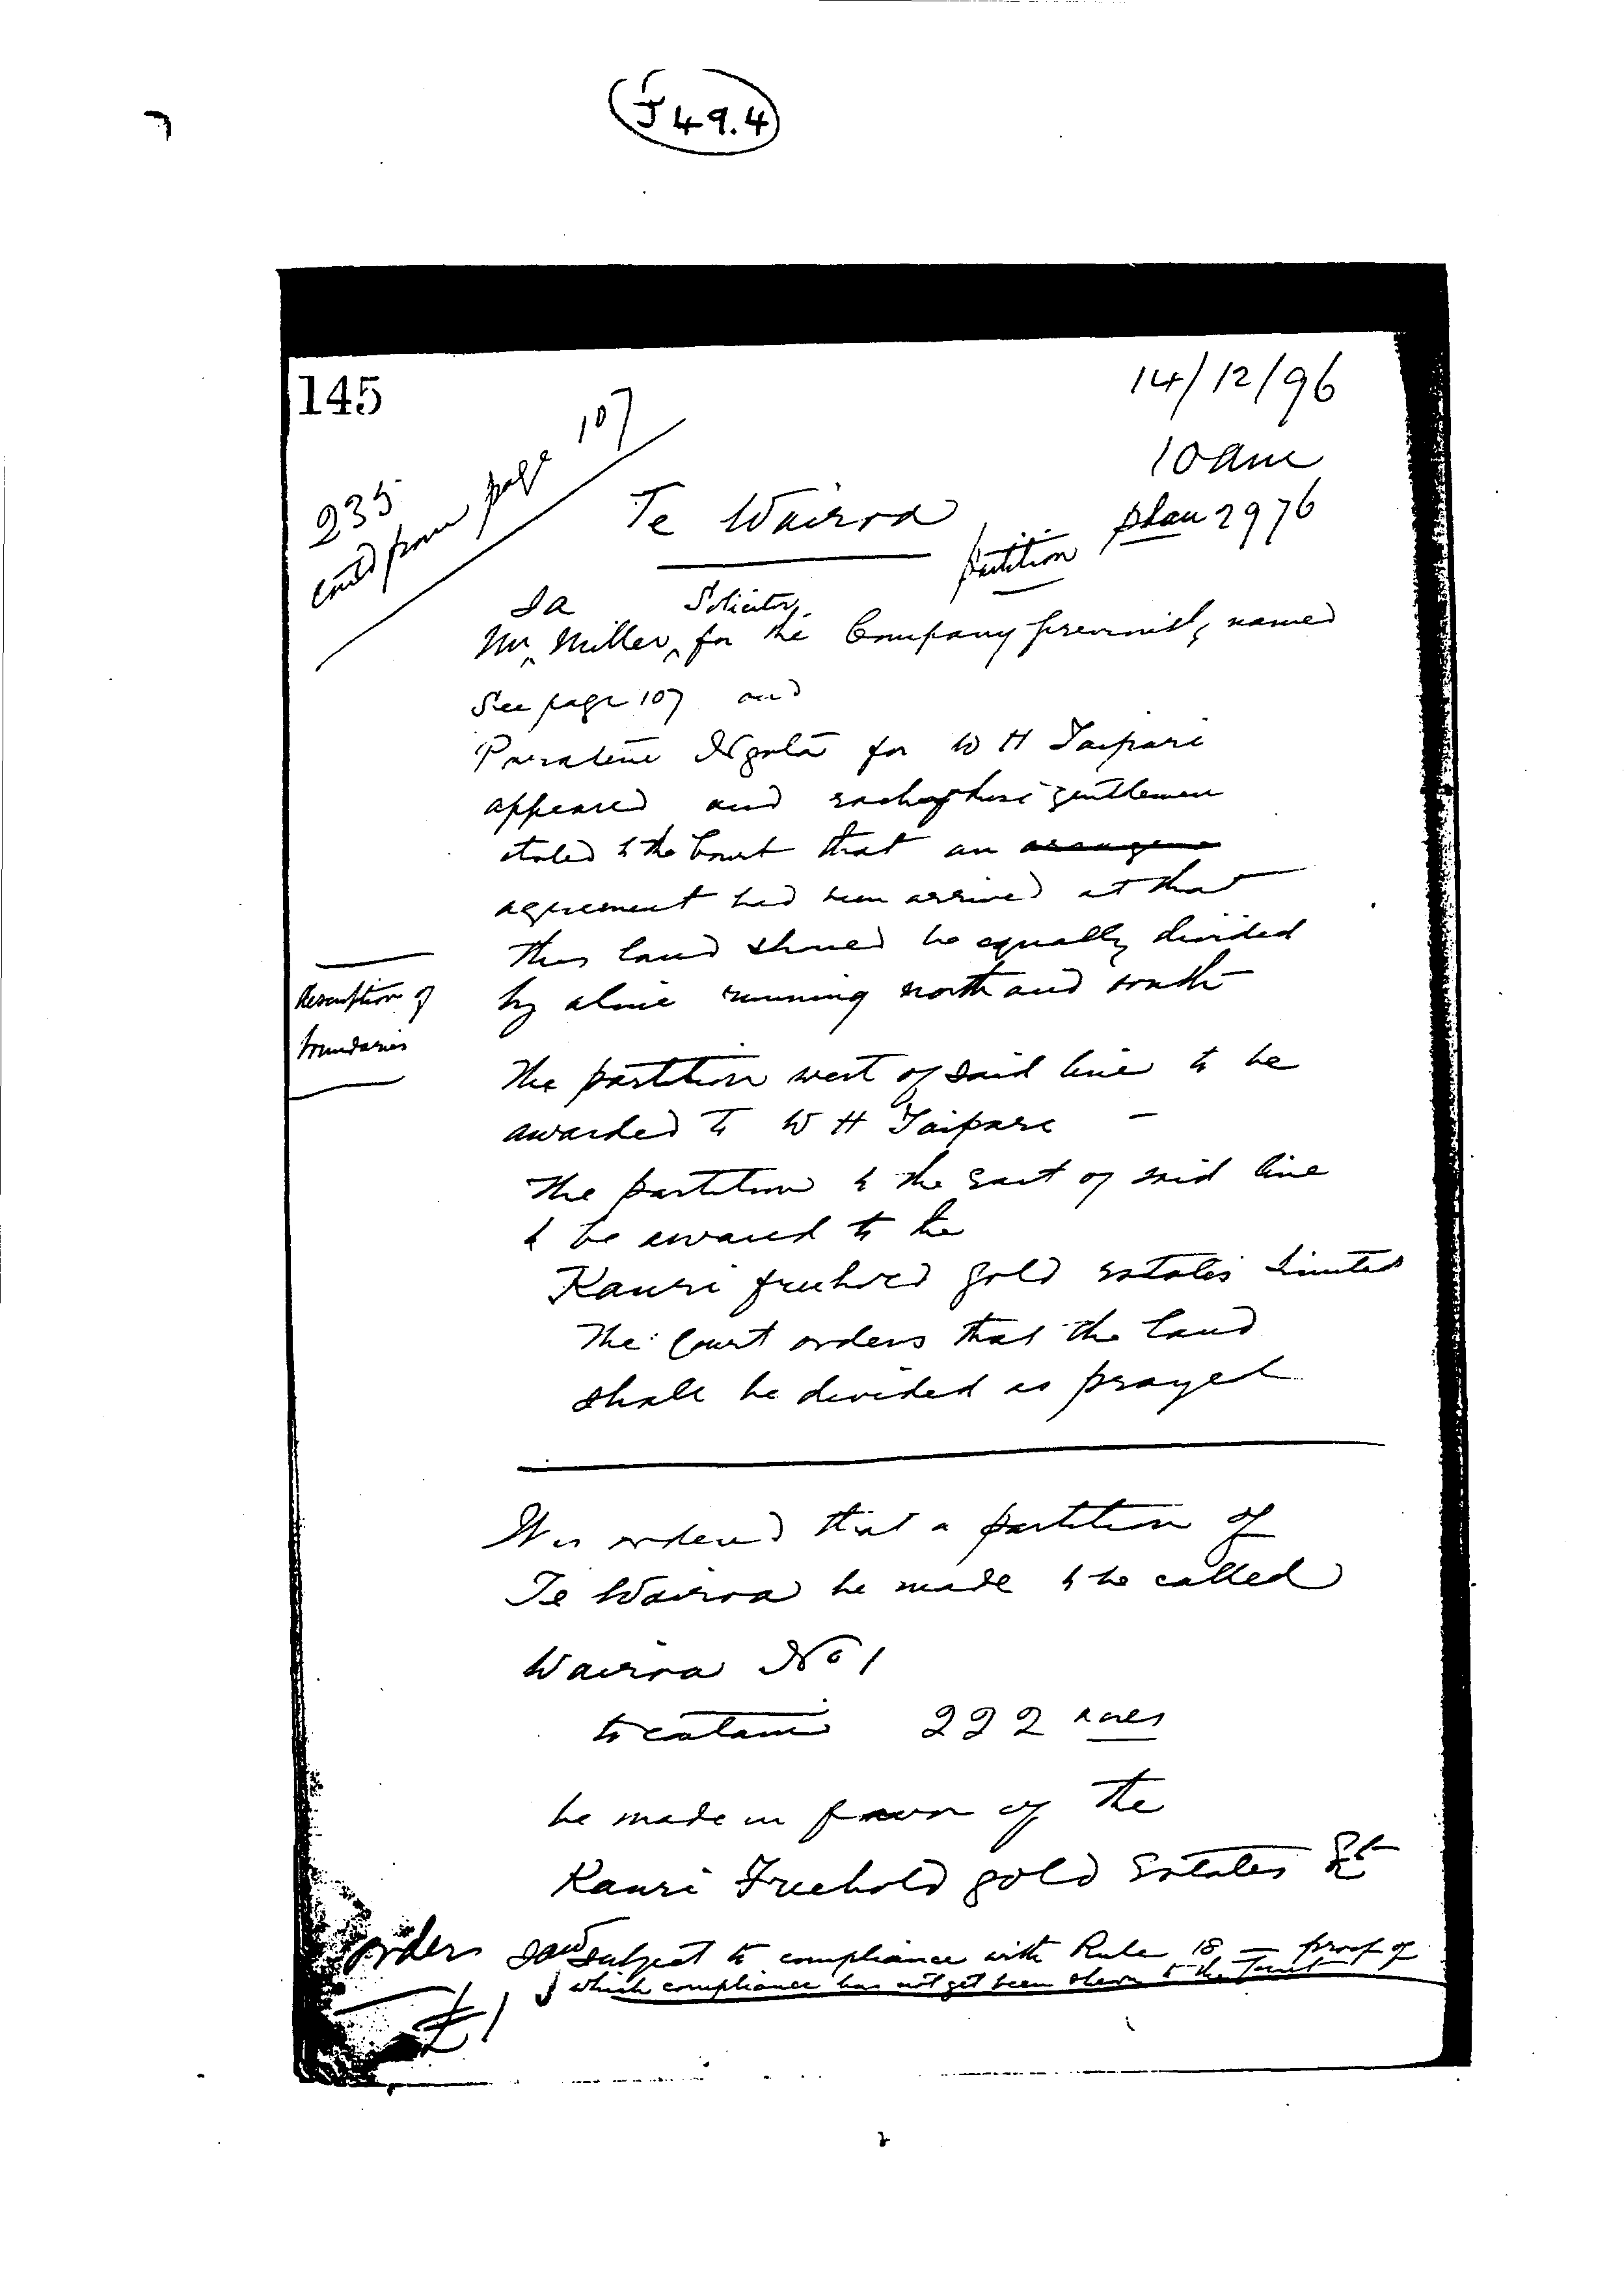 J 49.4
145
14/12/96
10 am
235
contd from page 107
Te Wairoa
partition
plan 2976
Mr Miller Solicitor for the Company previously named
See page 107 and
Paratene Ngata for W H Taipari
appeared and each of these gentlemen
stated to the Court that an arrangme
agreement had been arrived at that
this land should be equally divided
by a line running north and south
description of
boundaries
The partition west of said line to be
awarded to W H Taipari —
The partition to the East of said line
to be award to the
Kauri freehold gold Estates Limited
The Court orders that the land
shall be divided as prayed
It is ordered that a partition of
Te Wairoa be made to be called
Wairoa No 1
to contain 222 acres
be made in favor of the
Kauri Freehold gold Estates Lt
orders
subject to compliance with Rule 18 — proof of
which compliance has not yet been shewn to the Court
£1